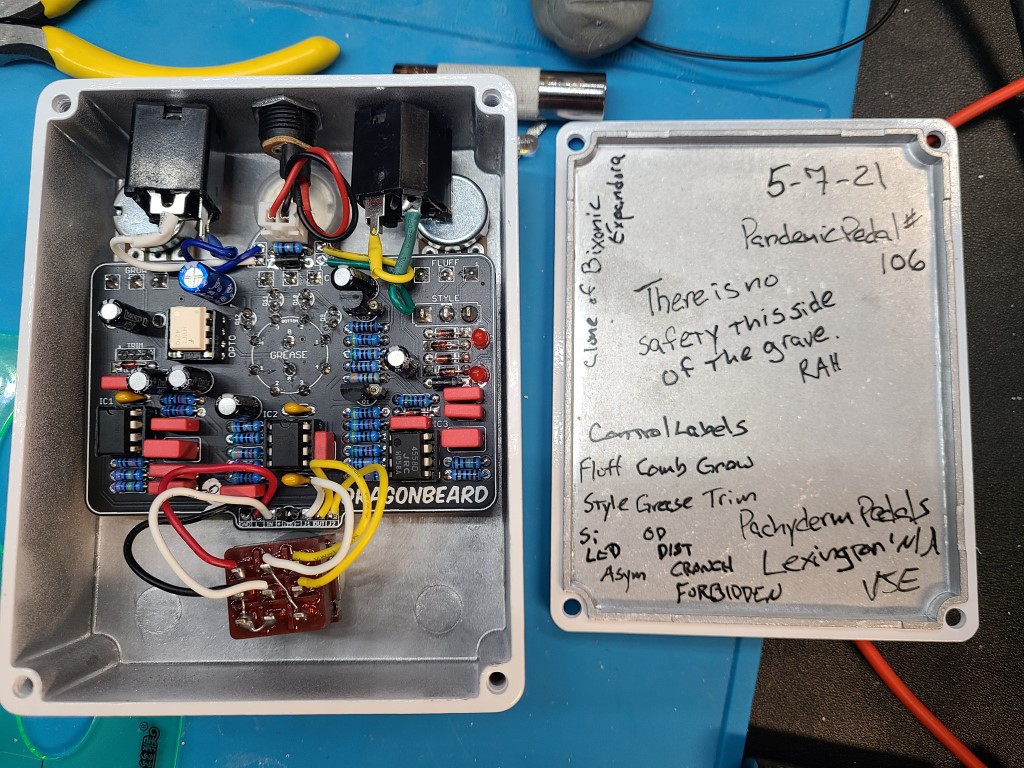 GROW
FLUFF
STYLE
OPTO
TRIM
GREASE
IC1
IC2
IC3
4558D
JRC
DRAGONBEARD
Clone of Bixonic
Expandora
5-7-21
Pandemic Pedal #
106
There is no
safety this side
of the grave.
RAH
Control Labels
Fluff Comb Grow
Style Grease Trim
Si OD
LED DIST
Asym CRUNCH
FORBIDDEN
Pachyderm Pedals
Lexington, MA
USE